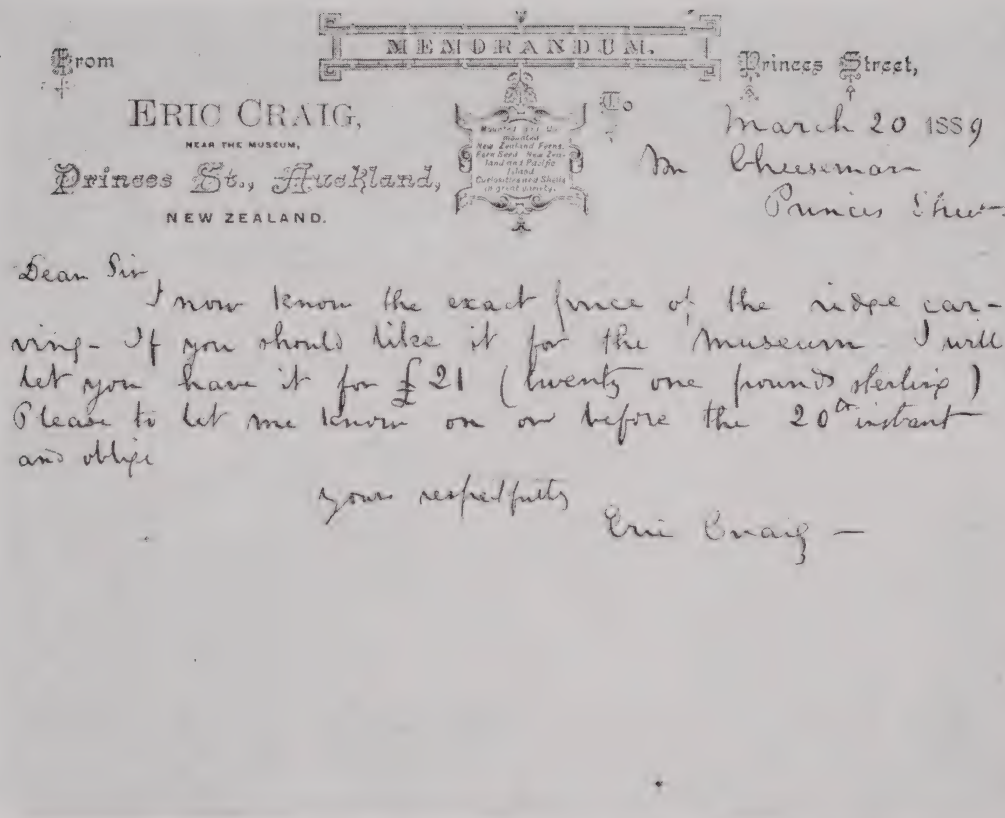 MEMORANDUM.
From
ERIC CRAIG,
NEAR THE MUSEUM,
Princes St., Auckland,
NEW ZEALAND.
Mounted and Un
mounted
New Zealand Ferns,
Fern Seed New Zea-
land and Pacific
Island
Curiosities and Shells
in great variety.
Princes Street,
To
March 20 1889
Mr Cheeseman
Princes Street
Dear Sir,
I now know the exact price of the ridge car-
ving - If you should like it for the Museum - I will
let you have it for £21 (twenty one pounds sterling)
Please to let me know on or before the 20th instant
and oblige
yours respectfully
Eric Craig -